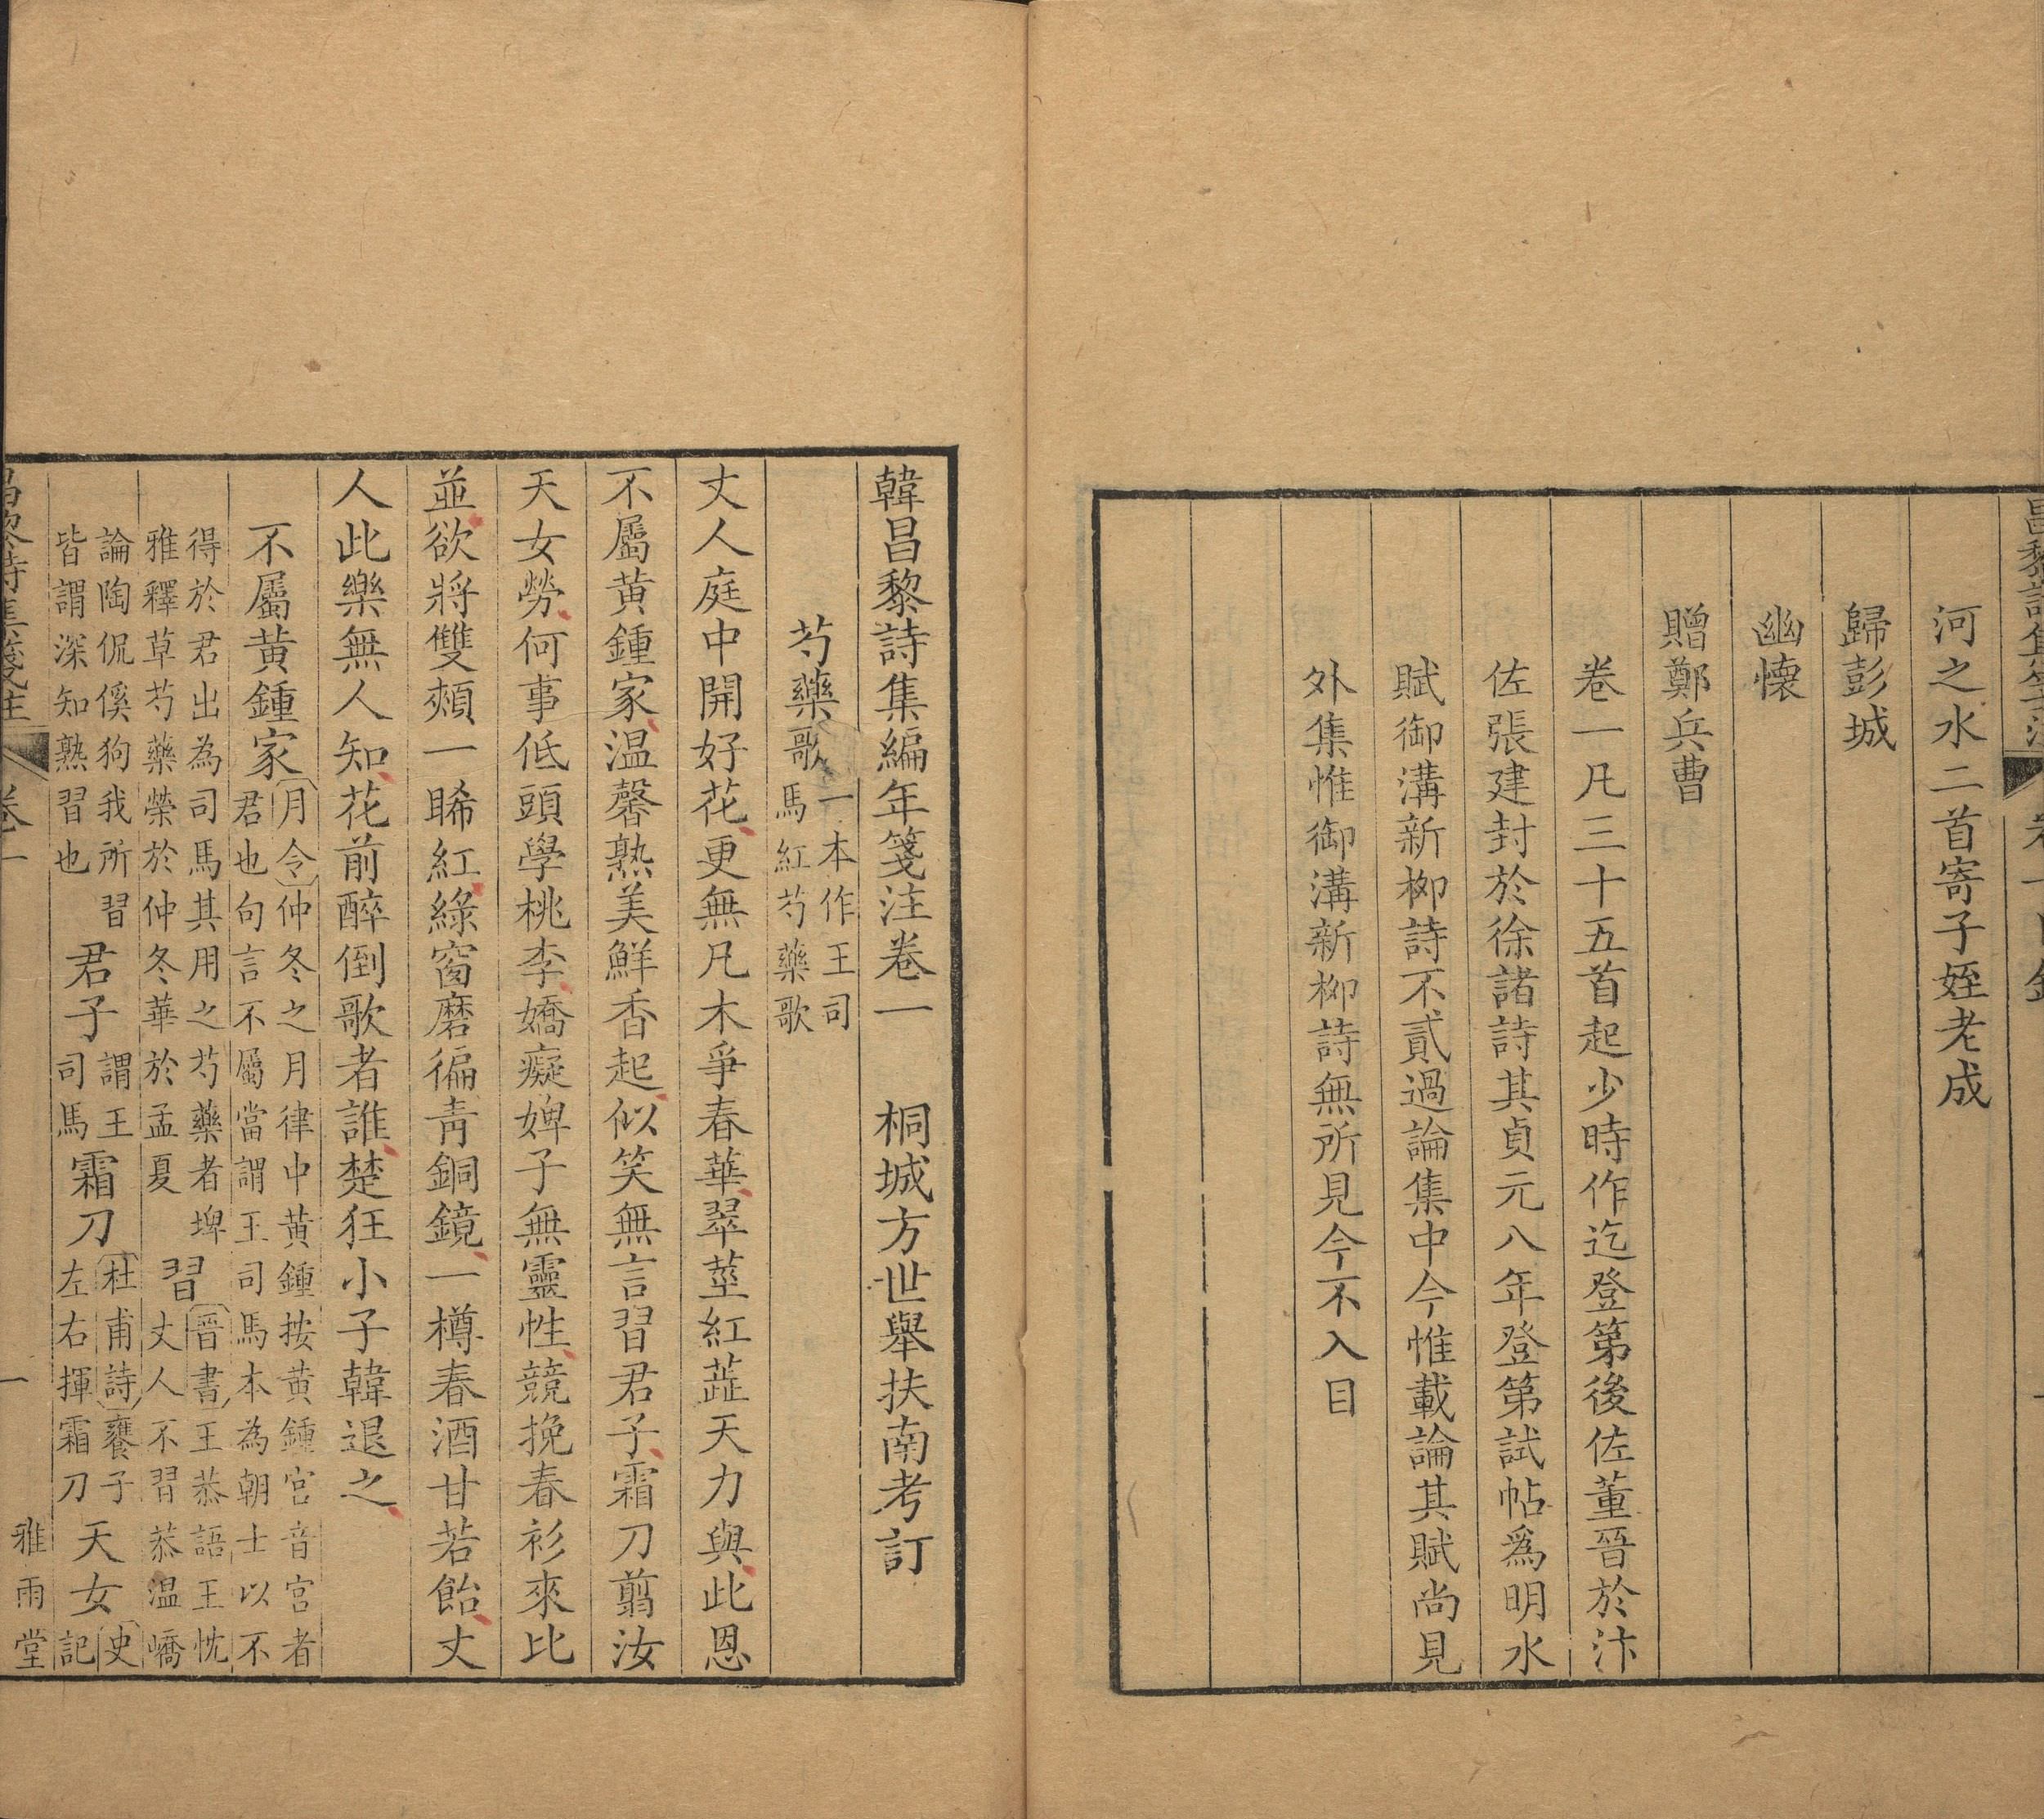 昌黎詩集箋注 卷一目錄 一
河之水二首寄子姪老成
歸彭城
幽懷
贈鄭兵曹
卷一凡三十五首起少時作迄登第後佐董晉於汴
佐張建封於徐諸詩其貞元八年登第試帖爲明水
賦御溝新柳詩不貳過論集中今惟載論其賦尚見
外集惟御溝新柳詩無所見今不入目
韓昌黎詩集編年箋注卷一 桐城方世舉扶南考訂
芍藥歌 一本作王司
馬紅芍藥歌
丈人庭中開好花更無凡木爭春華翠莖紅蘂天力與此恩
不屬黄鍾家温馨熟美鮮香起似笑無言習君子霜刀翦汝
天女勞何事低頭學桃李嬌癡婢子無靈性競挽春衫來比
並欲將雙頰一睎紅綠窗磨徧青銅鏡一樽春酒甘若飴丈
人此樂無人知花前醉倒歌者誰楚狂小子韓退之
不屬黄鍾家 月令仲冬之月律中黄鍾按黄鍾宫音宫者
君也句言不屬當謂王司馬本為朝士以不
得於君出為司馬其用之芍藥者埤
雅釋草芍藥榮於仲冬華於孟夏
習 晉書王恭語王忱
丈人不習恭温嶠
論陶侃傒狗我所習
皆謂深知熟習也
君子 謂王
司馬
霜刀 杜甫詩饔子
左右揮霜刀
天女 史
記
昌黎詩集箋注 卷一 一 雅雨堂